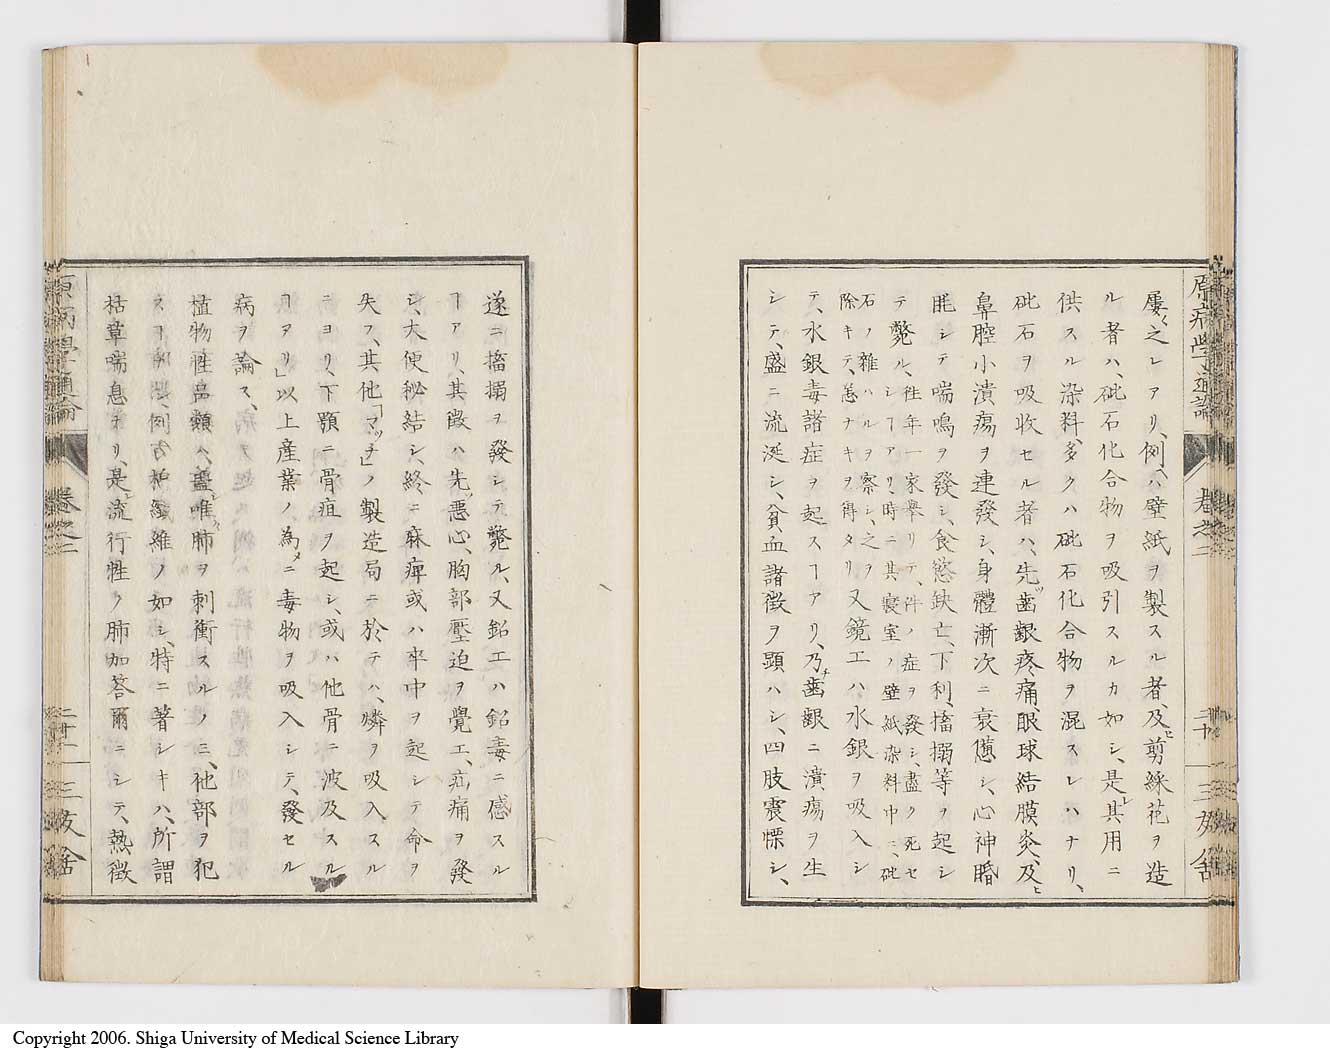 屢之レアリ、例ヘハ壁紙ヲ製スル者、及ヒ剪綵花ヲ造
ル者ハ、砒石化合物ヲ吸引スルカ如シ、是レ其用ニ
供スル染料、多クハ砒石化合物ヲ混スレハナリ、
砒石ヲ吸收セル者ハ、先ツ齒齦疼痛、眼球結膜炎、及ヒ
鼻腔小潰瘍ヲ連發シ、身體漸次ニ衰憊シ、心神昏
眊シテ喘鳴ヲ發シ、食慾缺亡、下利、搐搦等ヲ起シ
テ斃ル、往年一家擧リテ、件ノ症ヲ發シ、盡ク死セ
シヿアリ、時ニ其寢室ノ壁紙染料中ニ、砒
石ノ雜ハルヲ察シ、之ヲ
除キテ、恙ナキヲ得タリ又鏡工ハ水銀ヲ吸入シ
テ、水銀毒諸症ヲ起スヿアリ、乃チ齒齦ニ潰瘍ヲ生
シテ、盛ニ流涎シ、貧血諸徴ヲ顯ハシ、四肢震慄シ、
原病學通論
卷之二
二十
三友舍
遂ニ搐搦ヲ發シテ斃ル、又鉛工ハ鉛毒ニ感スル
ヿアリ、其徴ハ先ツ惡心、胸部壓迫ヲ覺エ、疝痛ヲ發
シ、大便秘結シ、終ニ麻痺或ハ卒中ヲ起シテ命ヲ
失フ、其他「マッチ」ノ製造局ニ於テハ、燐ヲ吸入スル
ニヨリ、下顎ニ骨疽ヲ起シ、或ハ他骨ニ波及スル
ヿアリ」以上産業ノ為メニ毒物ヲ吸入シテ、發セル
病ヲ論ス、
植物性品類ハ、蓋シ唯肺ヲ刺衝スルノミ、他部ヲ犯
スヿ例ヘハ綿纖維ノ如シ、特ニ著シキハ、所謂
枯草喘息ナリ、是レ流行性ノ肺加答爾ニシテ、熱徴
原病學通論
卷之二
二十一
三友舍
Copyright 2006. Shiga University of Medical Science Library